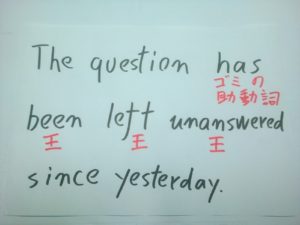 The question has
ゴミの
助動詞
been left unanswered
王 王 王
since yesterday.